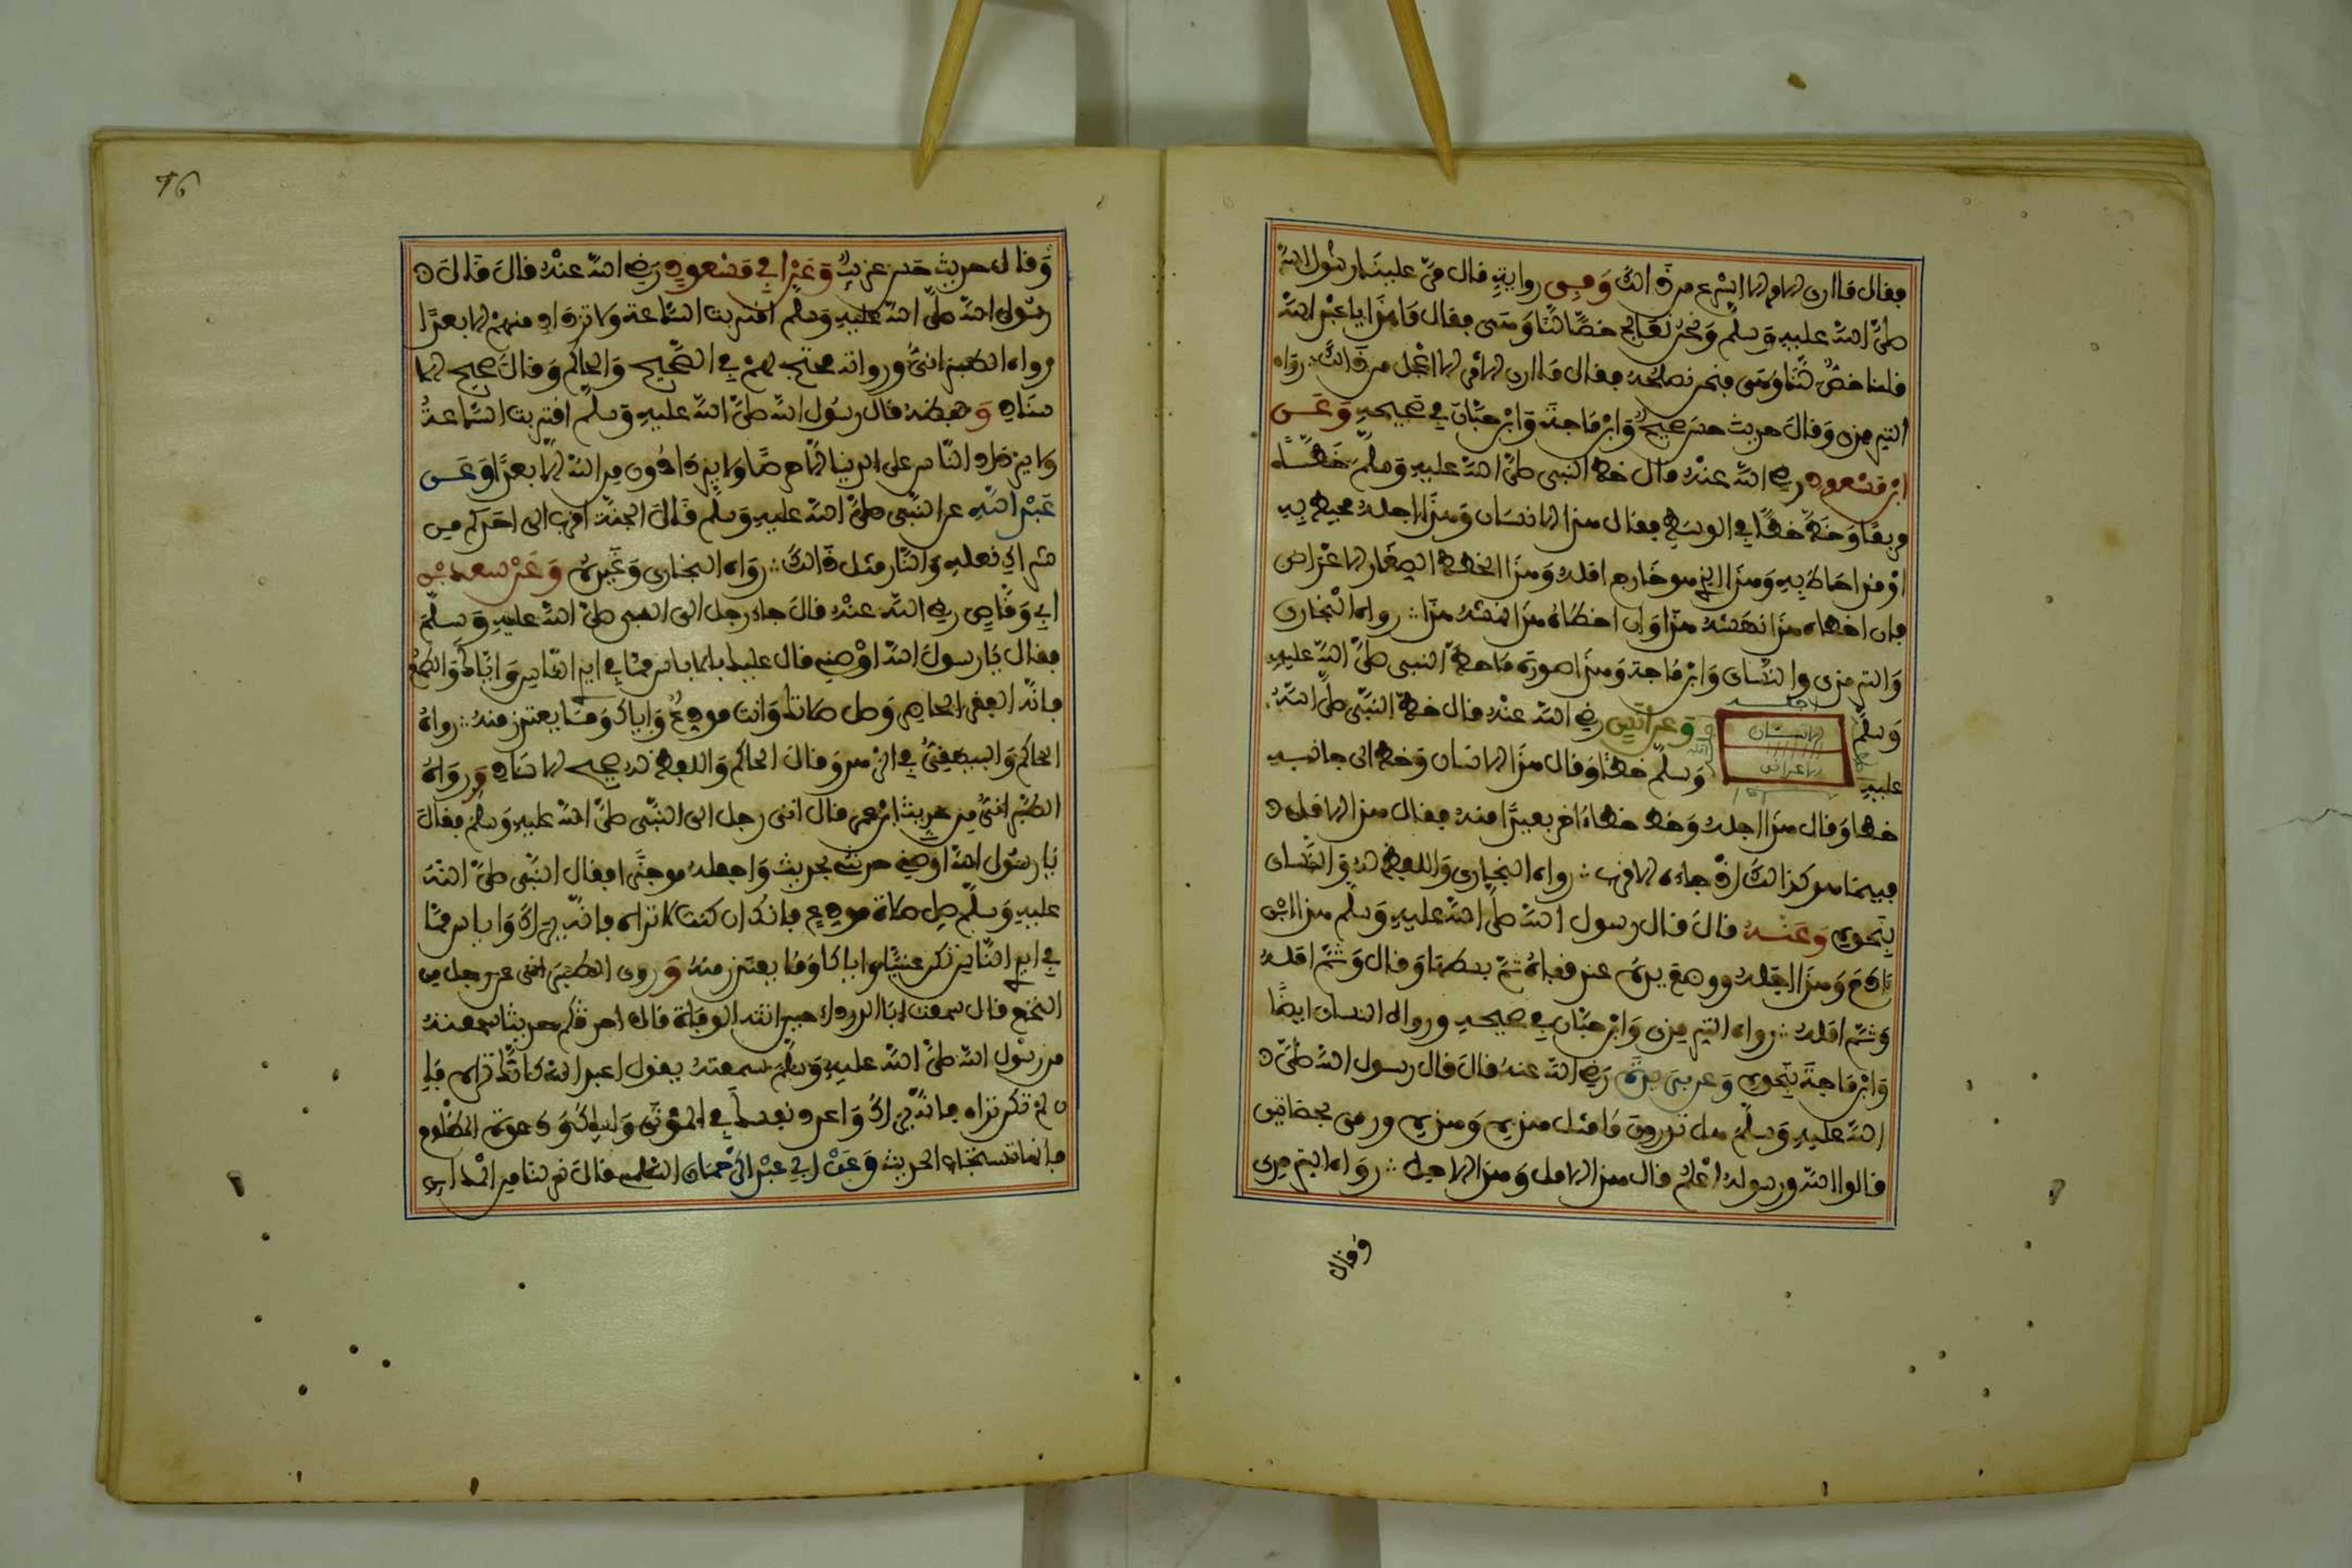 فقال ما أرى الأمر إلا أسرع من ذالك وَفِي رواية قال مرّ علينا رسول الله
صلى الله عليه وسلم وَنحن نعالج خصّا لنا وَهى فقال مَا هذا يا عبد الله
قلنا خصّ لنا وهى فنحن نصلحه فقال ما أرى الأمر إلا أعجل من ذالك رواه
الترمذي وَقال حديث حسن صحيح وَابن مَاجة وَابن حبّان في صحيحه وَعَن
ابن مسعود رضي الله عنه قال خط النبي صلى الله عليه وسلم خطّا
مربعا وَخطّ خطّا في الوسط فقال هذا الانسان وَهذا أجله محيط به
أو قد أحاط به وَهذا الذي هو خارج أمله وَهذا الخطط الصغار الاعراض
فإن أخطأه هذا نهشه هذا وَإن أخطأه هذا نهشه هذا رواه البخاري
وَالترمذي والنسائ وَابن مَاجة وَهذا صورة مَا خطّ النبي صلى الله عليه
وسلم
أجله
الانسان
الاعراض
وَعن أنس رضي الله عنه قال خطّ النبي صلى الله
عليه وَسلم خطّا وَقال هذا الانسان وَخط الى جانبه
خطا وَقال هذا أجله وَخط خطا آخر بعيدًا منه فقال هذا الامل
فبينما هو كذالك إذ جاءه الاقرب رواه البخاري وَاللفظ له وَالنسائ
بنحوه وَعَنه قالَ قال رسول الله صلى الله عليه وَسلم هذا ابن
ءادم وَهذا أجله ووضع يده عند قفاه ثمّ بسطها وَقال وَثمّ أمله
وَثمّ أمله رواه الترمذي وَابن حبّان في صحيحه ورواه النسائ أيضا
وَابن مَاجة بنحوه وَعن بريدة رضي الله عنه قالَ قال رسول الله صلى
الله عليه وَسلم هل تدرون مَا مثل هذه وَهذه ورمى بحصاتين
قالوا الله ورسوله أعلم قال هذا الامل وَهذا الاجل رواه الترمذي
وقال
76
وَقال حديث حسن غريب وَعَن ابن مسعود رضي الله عنه قالَ قالَ
رسول الله صلى الله عليه وَسلم اقتربت السّاعة وَلا تزداد منهم إلا بعدًا
رواه الطبراني ورواته محتج بهم في الصّحيح وَالحاكم وَقالَ صحيح الا
سناد وَلفظه قال رسول الله صلى الله عليه وسلم اقتربت السّاعة
وَلا يزداد النّاس على الدنيا إلا حرصًا وَلا يزدادون من الله إلا بعدًا وَعَن
عَبد الله عن النّبي صلى الله عليه وَسلم قالَ الجنّة أقرب الى أحدكم من
شراك نعله وَالنّار مثل ذالك رواه البخاري وَغيره وَعَن سعد بن
أبي وَقاص رضي الله عنه قالَ جاء رجل الى النبي صلى الله عليه وَسلم
فقال يا رسولَ الله أوصني قال عليك بالاياس مما في أيدي النّاس وَاياك وَالطمع
فإنّه الفقر الحاضر وَصل صلاتك وَأنت مودع وَإياك وَمَا يعتذر منه رواه
الحاكم وَالبيهقي في الزهد وَقالَ الحاكم وَاللفظ له صحيح الاسناد وَرواه
الطبراني من حديث ابن عمر قال أتى رجل الى النّبي صلى الله عليه وَسلم فقالَ
يا رسول الله أوصني حدثني بحديث وَاجعله موجزًا فقال النّبي صلى الله
عليه وَسلم صل صلاة مودع فإنك إن كنت لا تراه فإنّه يراك وَاياس ممّا
في أيدي النّاس تكن غنيّا وَإياك وَمَا يعتذر منه وَروى الطبراني عن رجل من
النخع قال سمعت أبا الدرداء حين حضرته الوفاة قالَ أحدثكم حديثا سمعته
من رسول الله صلى الله عليه وَسلم سمعته يقول اعبد الله كأنك تراه فإ
ن لم تكن تراه فإنّه يراك وَاعدد نفسك في الموتى وَإياك وَدعوة المظلوم
فإنها تستجاب الحديث وَعَن أبي عبد الرّحمان السلمي قالَ نزلنا من المدائن